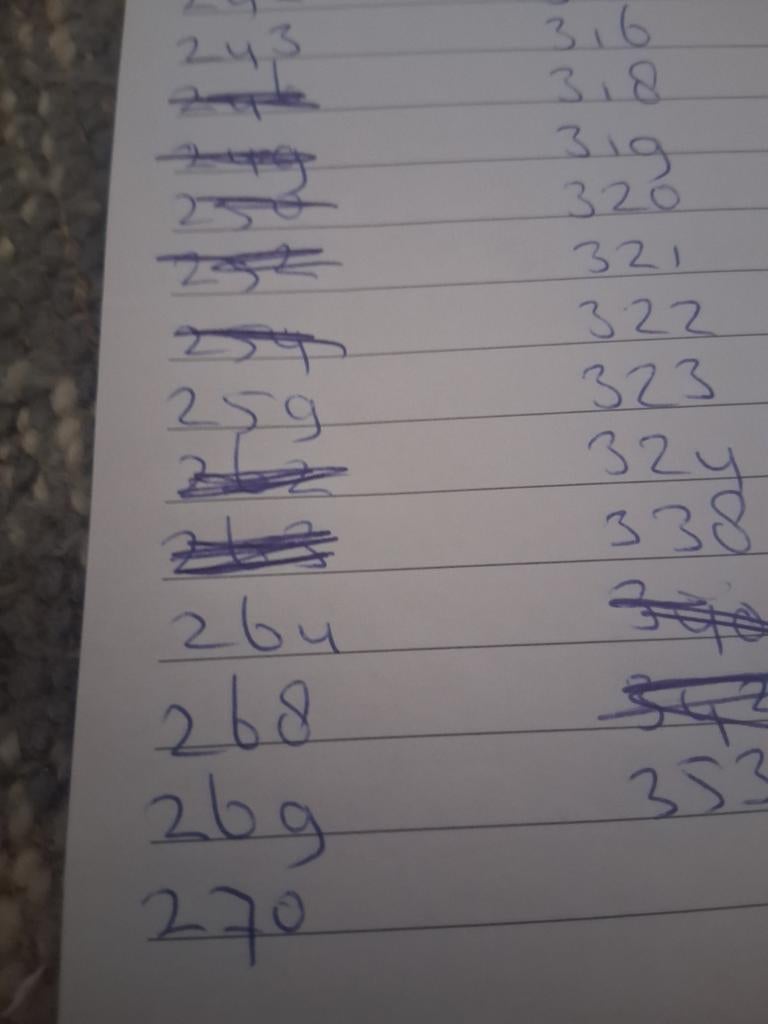 243
246
249
250
252
254
259
262
263
264
268
269
270
316
318
319
320
321
322
323
324
338
340
342
353